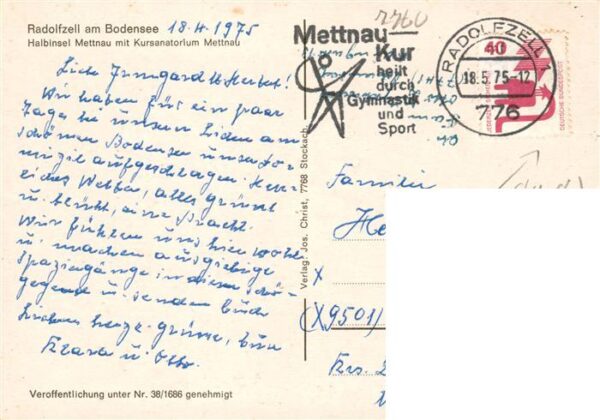 Radolfzell am Bodensee 18.4.1975
Halbinsel Mettnau mit Kursanatorium Mettnau
Liebe Irmgard u. Herbert!
Wir haben für ein paar
Tage bei unseren Lieben am
schönen Bodensee unser Do-
mizil aufgeschlagen. Herr-
liches Wetter, alles grünt
u. blüht, eine Pracht.
Wir fühlen uns hier wohl
u. machen ausgiebige
Spaziergänge in dieser schö-
gegend u. senden Euch
herzl. Grüsse, Eure
Klara u. Otto.
Veröffentlichung unter Nr. 38/1686 genehmigt
Verlag: Jos. Christ, 7768 Stockach
7760
Mettnau-
Kur
heilt
durch
Gymnastik
und
Sport
RADOLFZELL 1
18.5.75-12
776
40
DEUTSCHE BUNDESPOST
Familie
He
x
(X9501)
Krs. Z